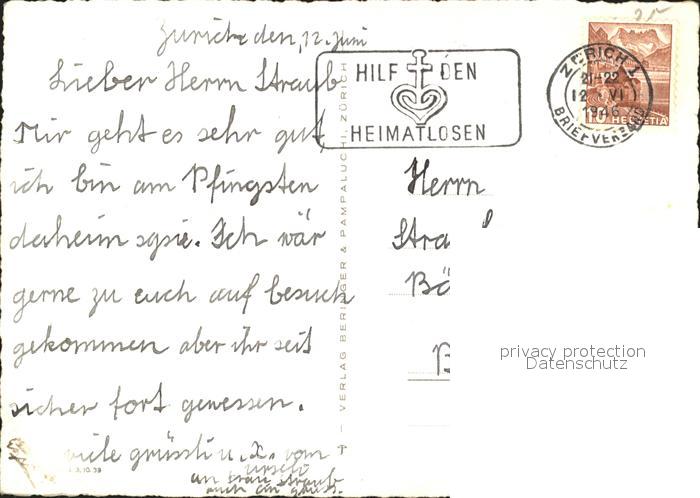 Zurich den, 12. Juni
Lieber Herrn Straub
Mir geht es sehr gut,
ich bin am Pfingsten
daheim sgsie. Ich wär
gerne zu euch auf besuch
gekommen aber ihr seit
sicher fort gewessen.
viele grüssli u. X. vom
urseli
an frau Straub
auch ein gruss.
HILF DEN
HEIMATLOSEN
ZÜRICH 1
21-22
12 VI
1946
BRIEFVERSAND
10 HELVETIA
Herrn
Stra
Bö
VERLAG BERINGER & PAMPALUCHI, ZÜRICH
3.10.39
privacy protection
Datenschutz